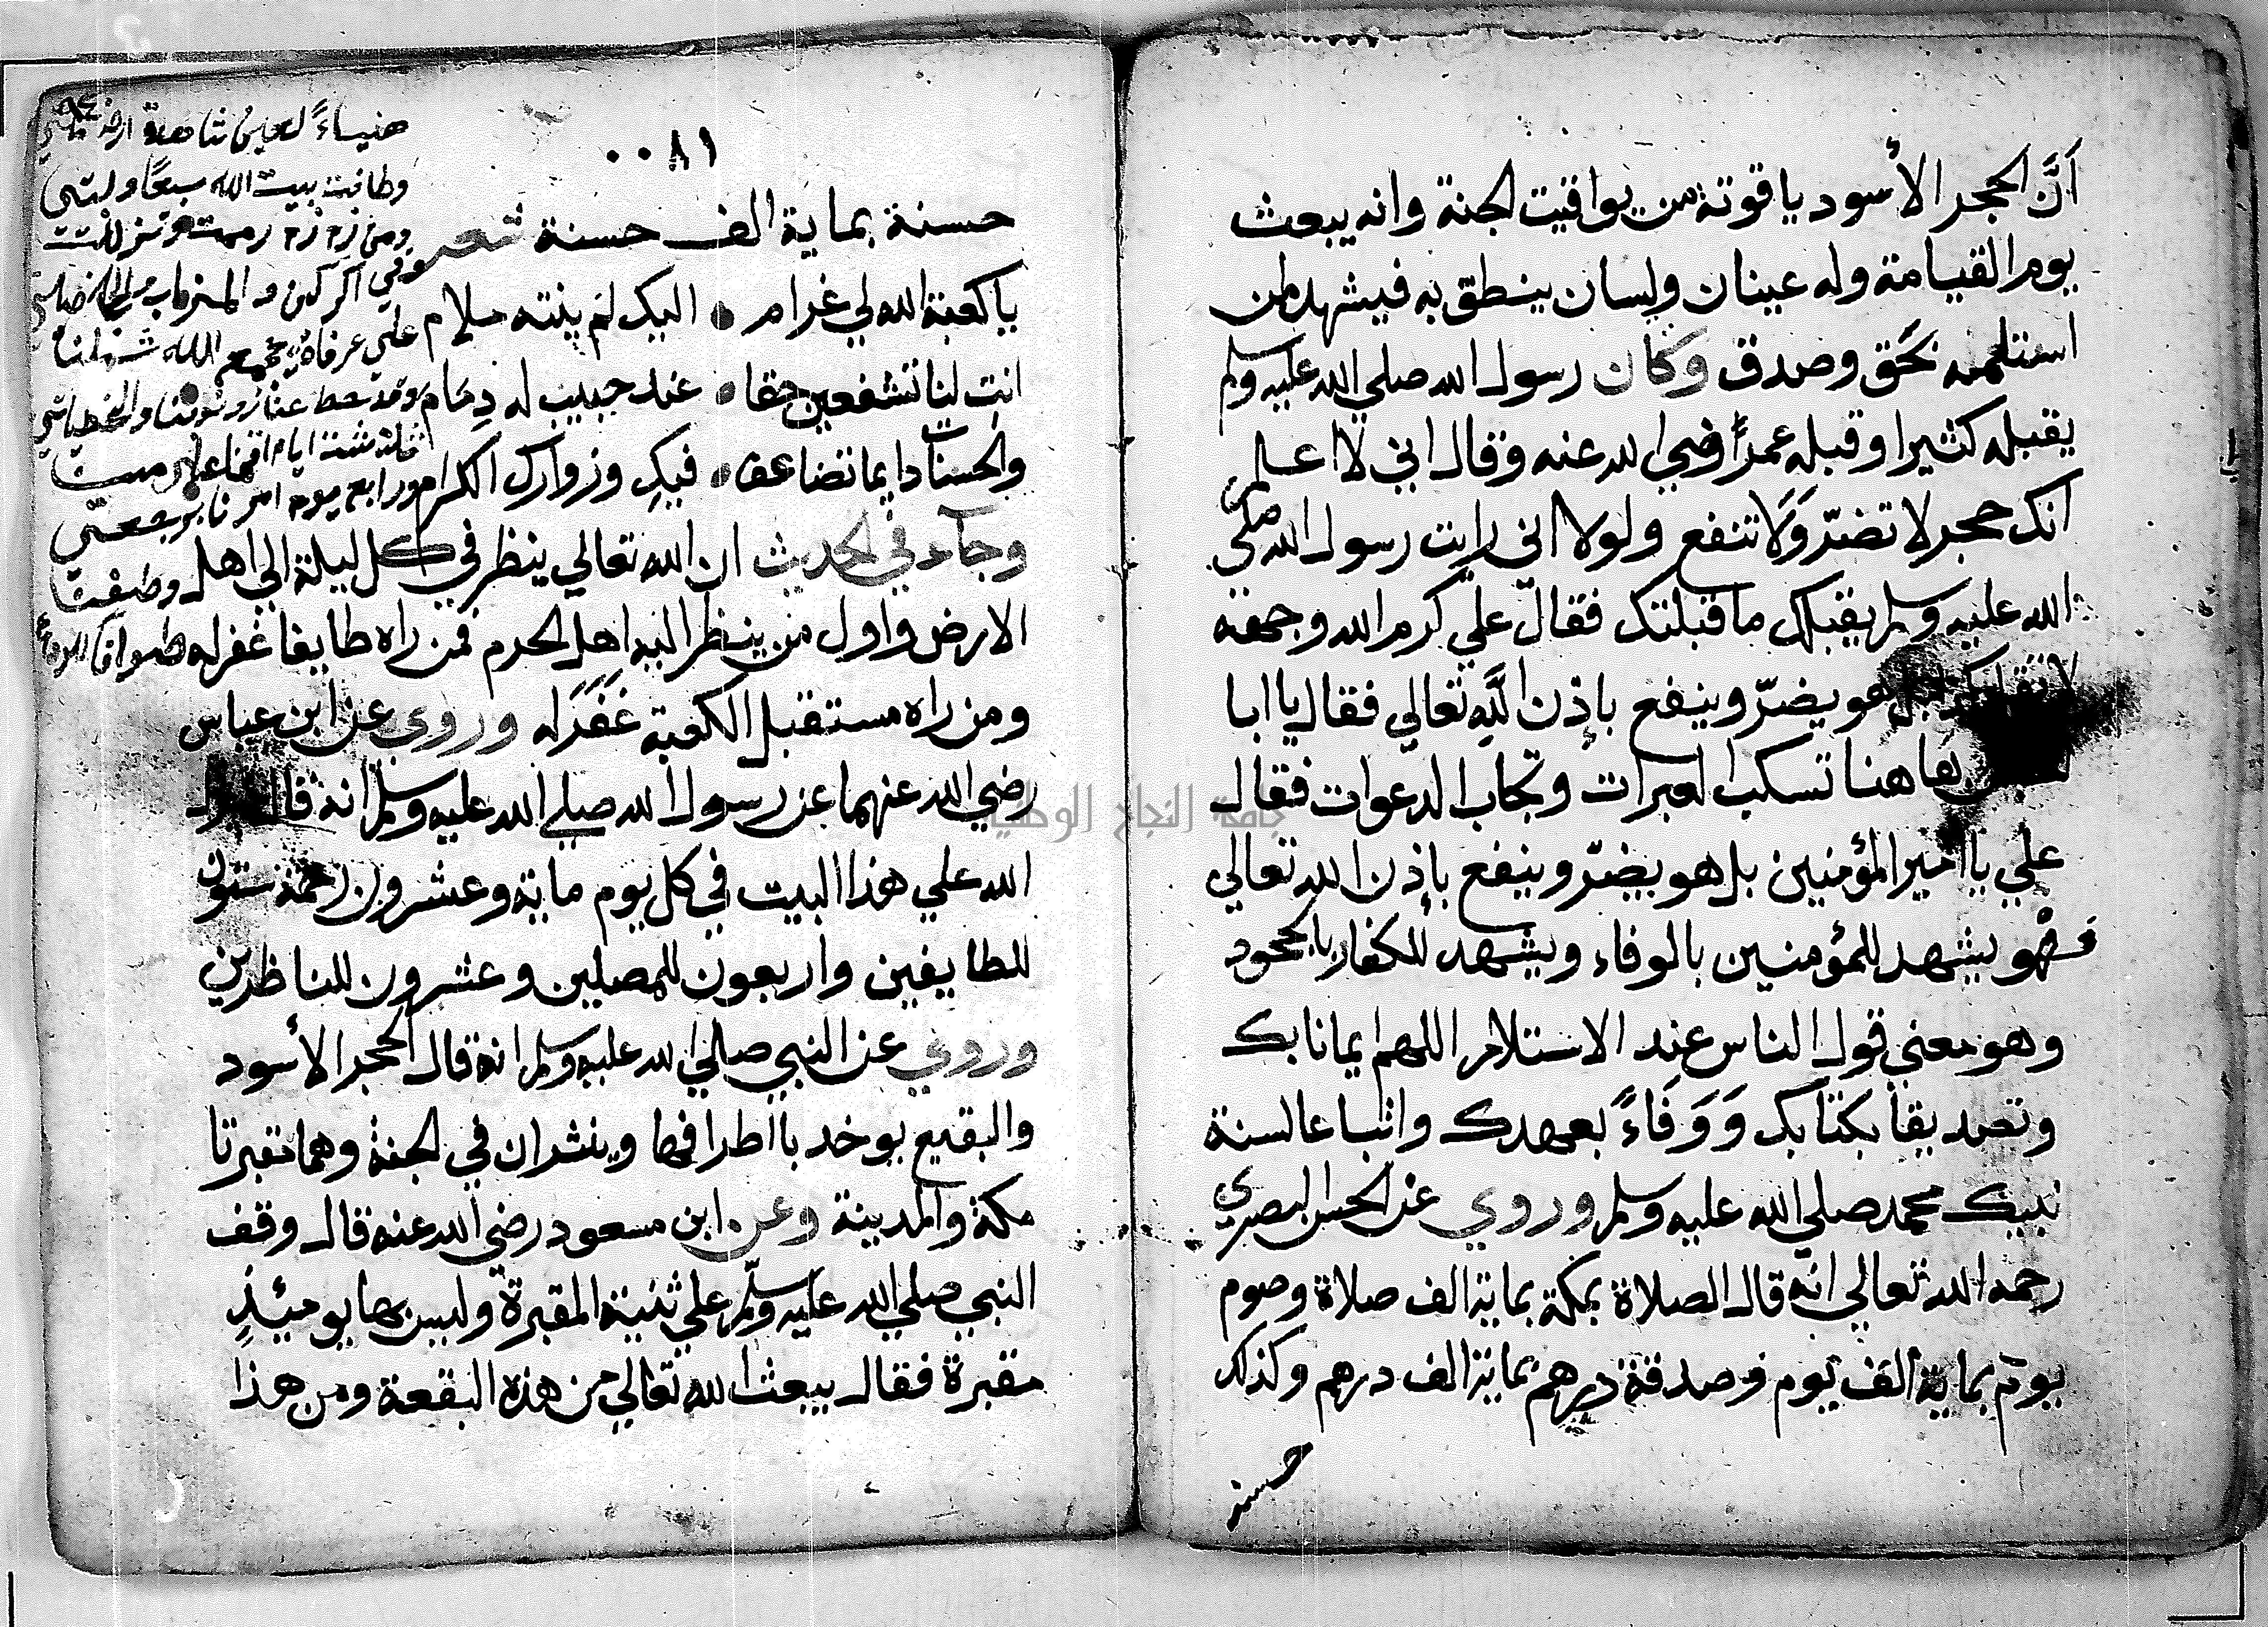 أنَّ الحجر الأسود ياقوتة من يواقيت الجنة وانه يبعث
يوم القيامة وله عينان ولسان ينطق به فيشهد لمن
استلمه بحق وصدق وكان رسول الله صلي الله عليه وسلم
يقبله كثيرا وقبله عمر رضي الله عنه وقال اني لا اعلم
انك حجر لا تضرّ ولا تنفع ولولا اني رايت رسول الله صلي
الله عليه وسلم يقبلك ما قبلتك فقال علي كرم الله وجهه
هو يضرّ وينفع باذن الله تعالي فقال يا ابا
هاهنا تسكب العبرات وتجاب الدعوات فقال
علي يا امير المؤمنين بل هو يضرّ وينفع بإذن الله تعالي
فهو يشهد للمؤمنين بالوفاء ويشهد للكفار بالجحود
وهو معني قول الناس عند الاستلام اللهم ايمانا بك
وتصديقا بكتابك وَوَفَاءً بعهدك واتباعا لسنة
نبيك محمد صلي الله عليه وسلم وروي عن الحسن البصري
رحمه الله تعالي انه قال الصلاة بمكة بماية الف صلاة وصوم
يوم بماية الف يوم وصدقة درهم بماية الف درهم وكذلك
حسنة
٠٠٨١
حسنة بماية الف حسنة شعر
يا كعبة الله لي غرام اليك لم ينته ملام
انت لنا تشفعين حقا عند حبيب له ذمام
والحسنات دايما تضاعف فيكِ وزوارك الكرام
وجآء في الحديث ان الله تعالي ينظر في كل ليلة الي اهل
الارض واول من ينظر اليه اهل الحرم فمن راه طايفا غفر له
ومن راه مستقبل الكعبة غَفَرَ له وروي عن ابن عباس
رضي الله عنهما عن رسول الله صلي الله عليه وسلم انه قال
الله علي هذا البيت في كل يوم ماية وعشرون رحمة ستون
للطايفين واربعون للمصلين وعشرون للناظرين
وروي عن النبي صلي الله عليه وسلم انه قال الحجر الأسود
والبقيع يوخد باطرافها وينثران في الجنة وهما مقبرتا
مكة والمدينة وعن ابن مسعود رضي الله عنه قال وقف
النبي صلي الله عليه وسلّم علي ثنية المقبرة وليس بها يوميئذٍ
مقبرة فقال يبعث الله تعالي من هذه البقعة ومن هذا
هنياءً لعين شاهدة
وطافت ببيت الله سبعًا ولبتي
ومن زمزم
وفي الركن والميزاب
علي عرفاة يجمع الله شملنا
وقد حط عنا ذنوبنا والخطيات
ثلاثة ايام اقمنا علي
ورابع يوم امرنا
وطفت
طوافا
جامعة النجاح الوطنية